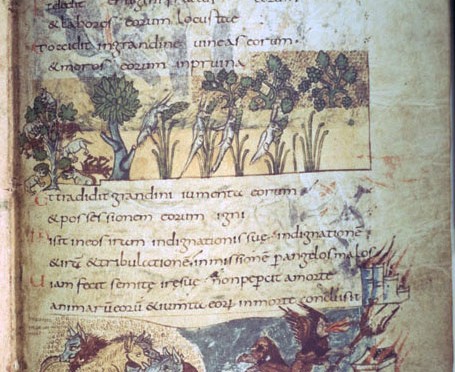 dedit
& labores eorum locuste
Et occidit ingrandine uineas eorum
& moros eorum inpruina
Et tradidit grandini iumenta eorum
& possessionem eorum igni
isit ineos iram indignationis sue indignationē
& irā & tribulationē inmissionē p angelos malos
Uiam fecit semite iresue nonpepercit amorte
animarū eorū & iumta eorū inmorte conclusit